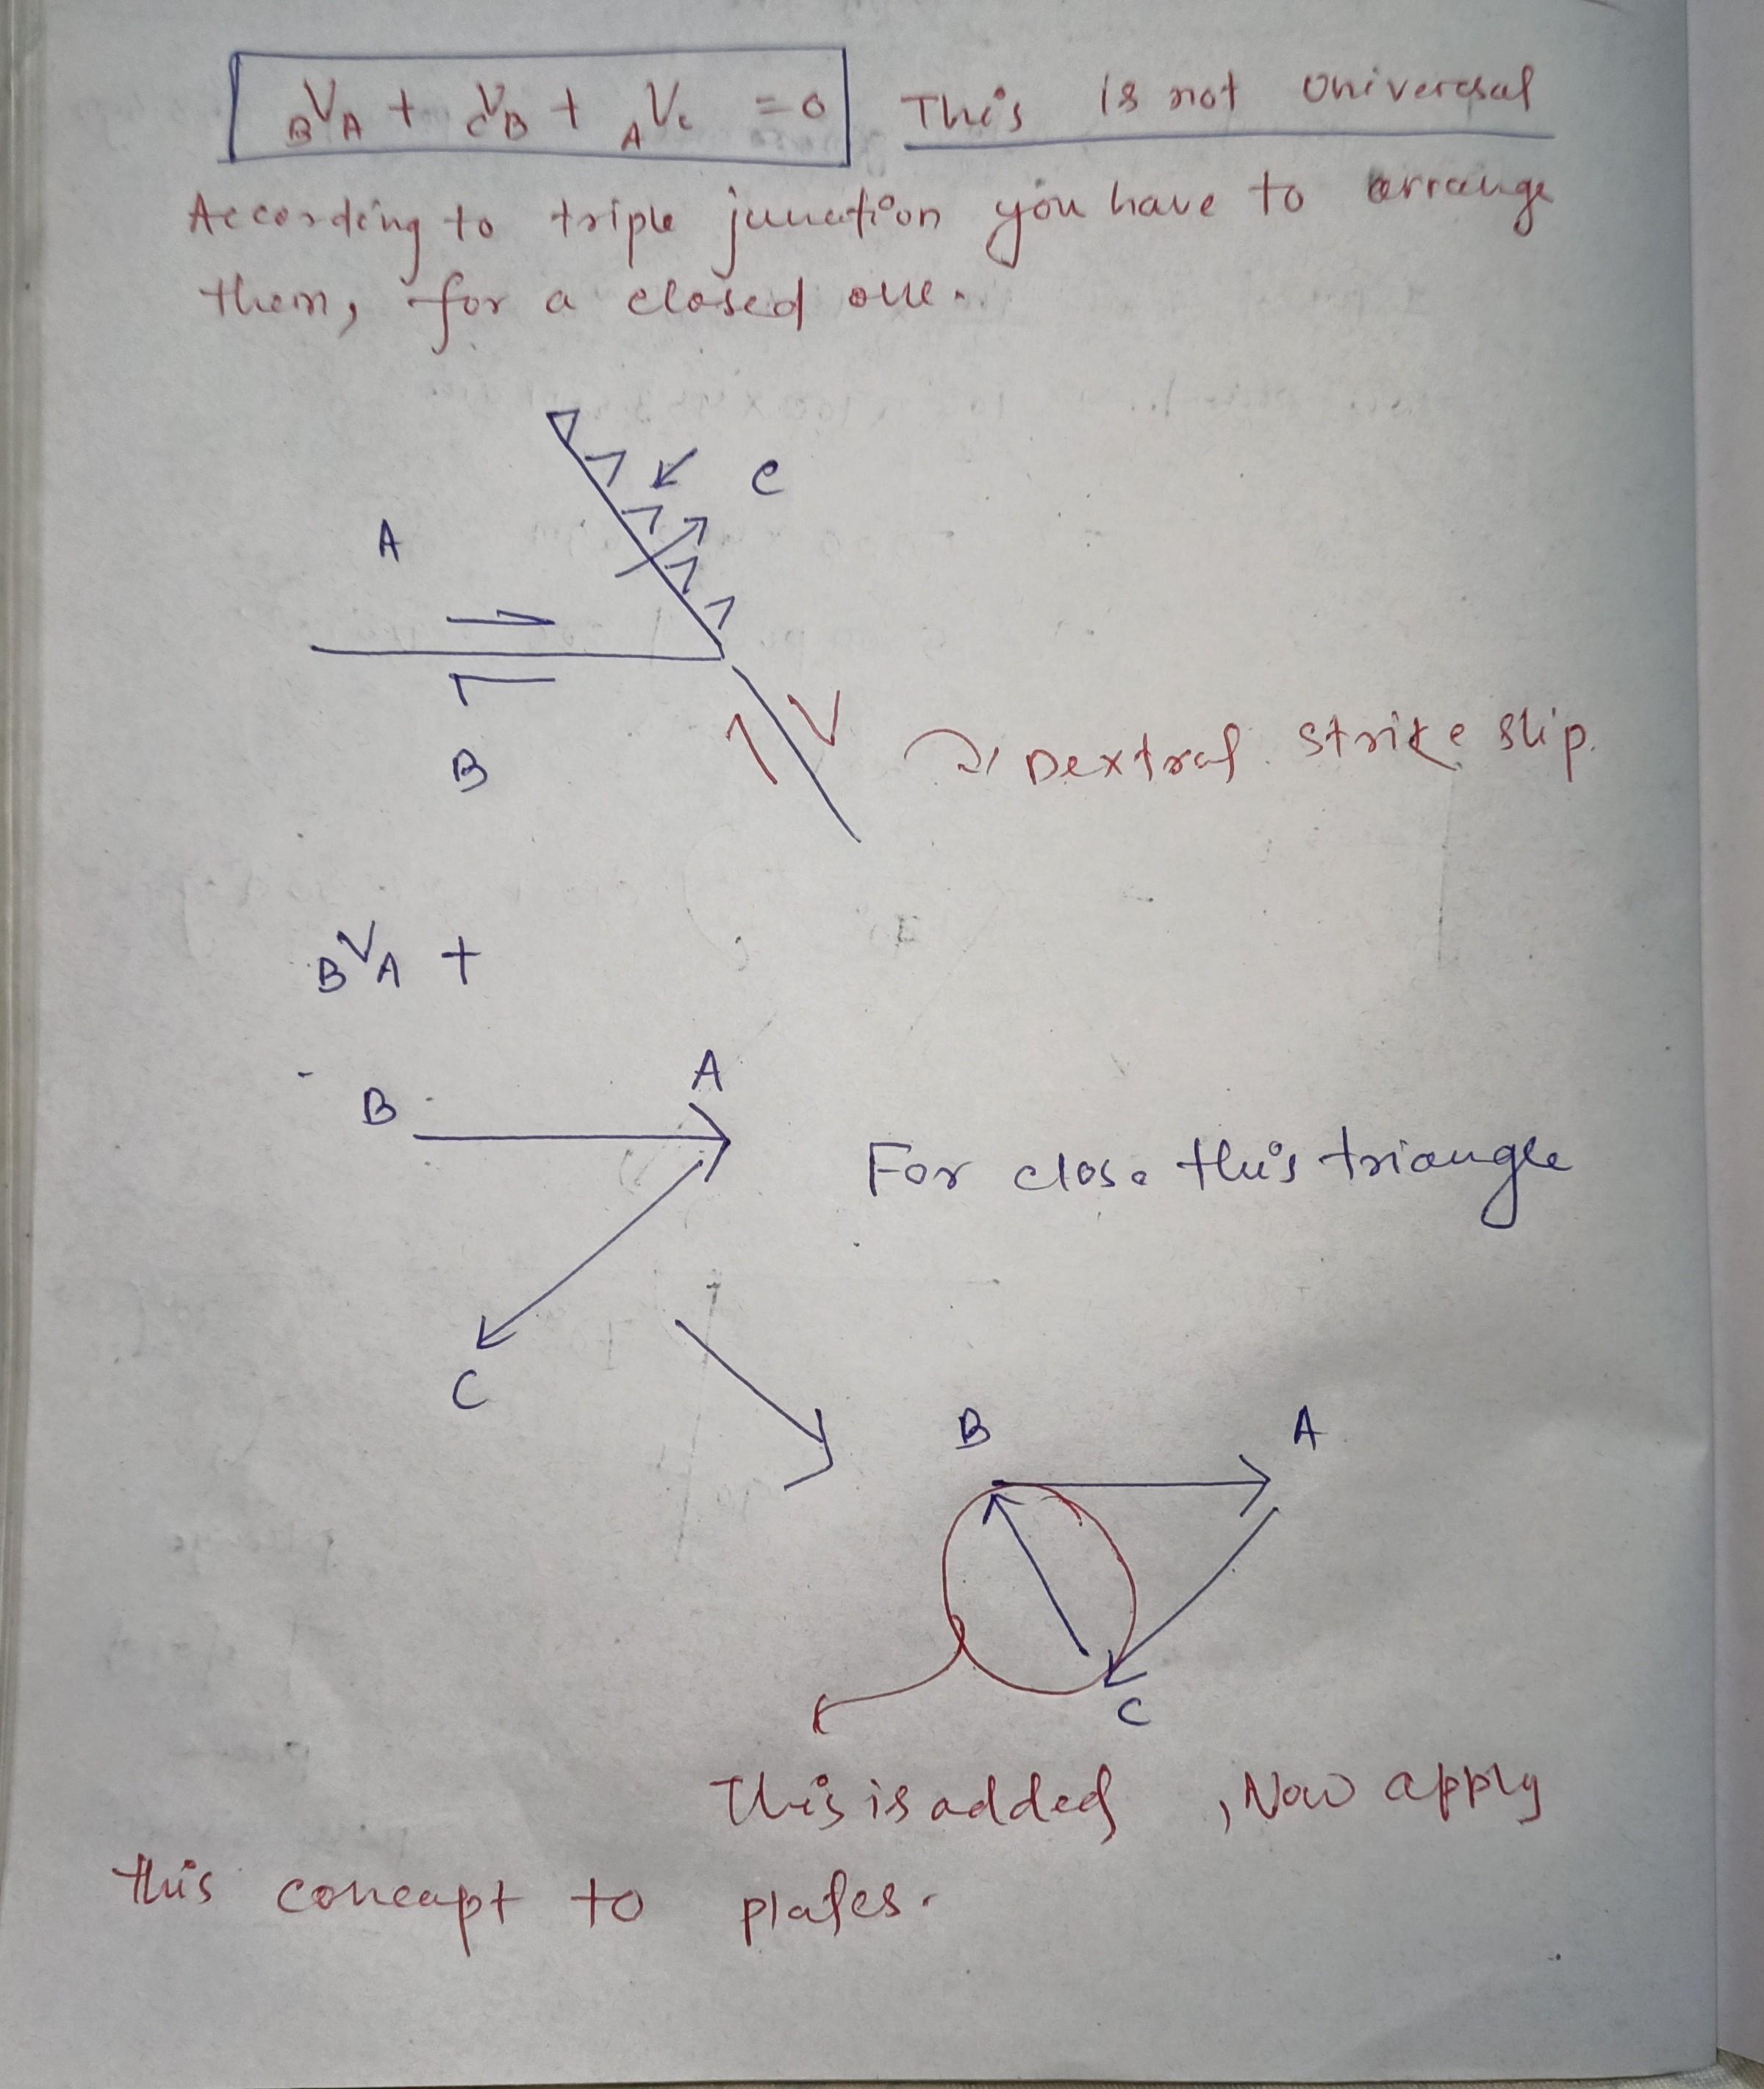 BVA + CVB + AVC = 0 This is not universal
According to triple junction you have to arrange
them, for a closed one.
C
A
B
Dextral strike slip.
BVA +
A
B
For close this triangle
C
B A
C
This is added, Now apply
this concept to plates.